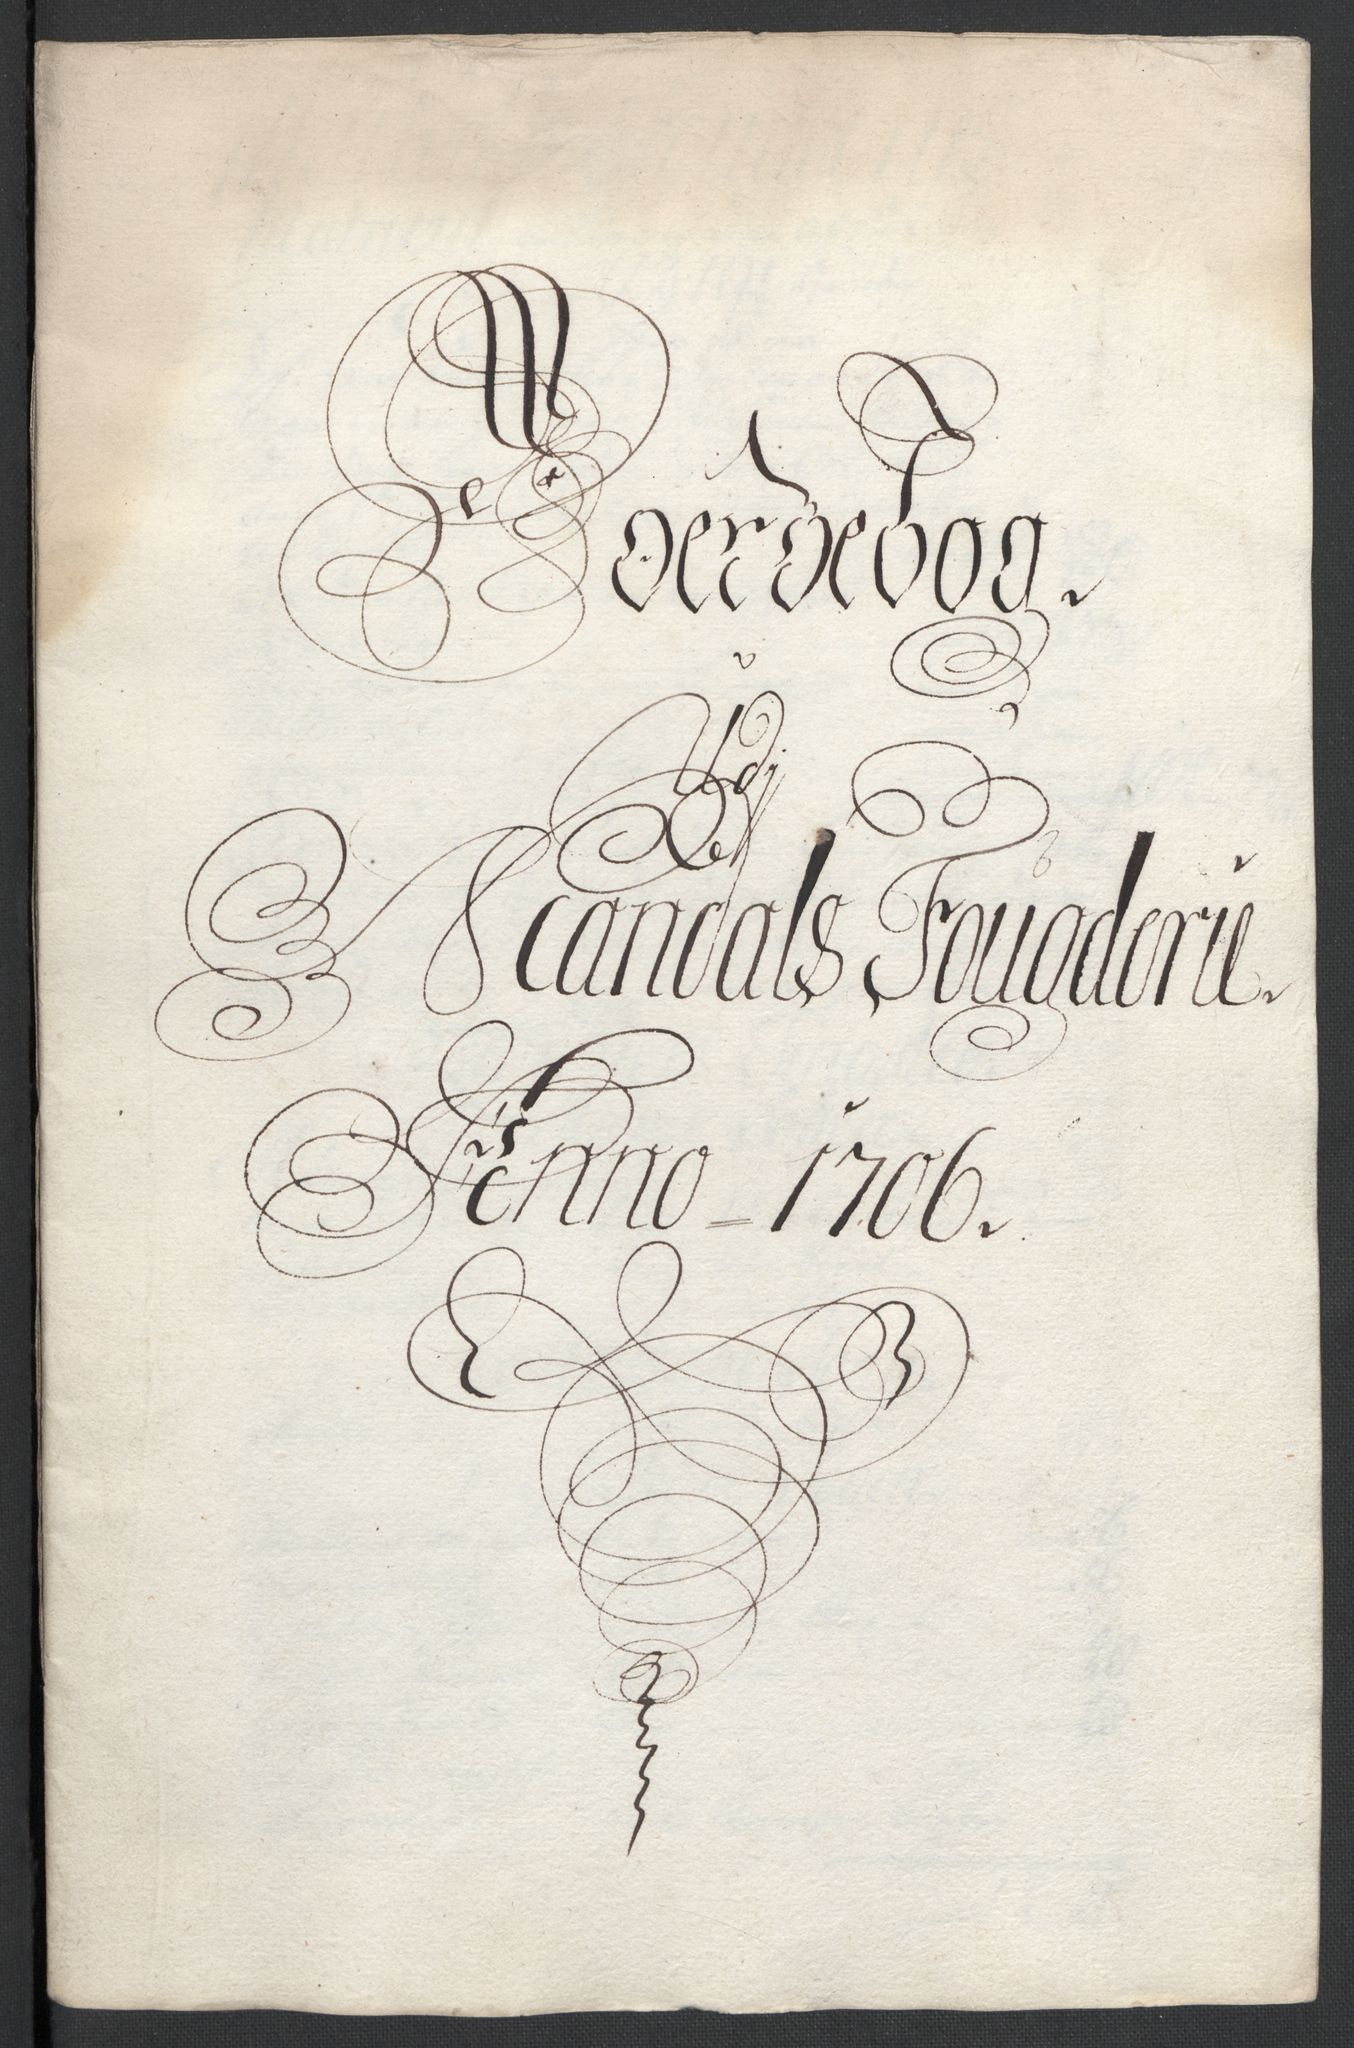 Joerdebog.
Udj
Mandals Fougderie.
Anno = 1706.